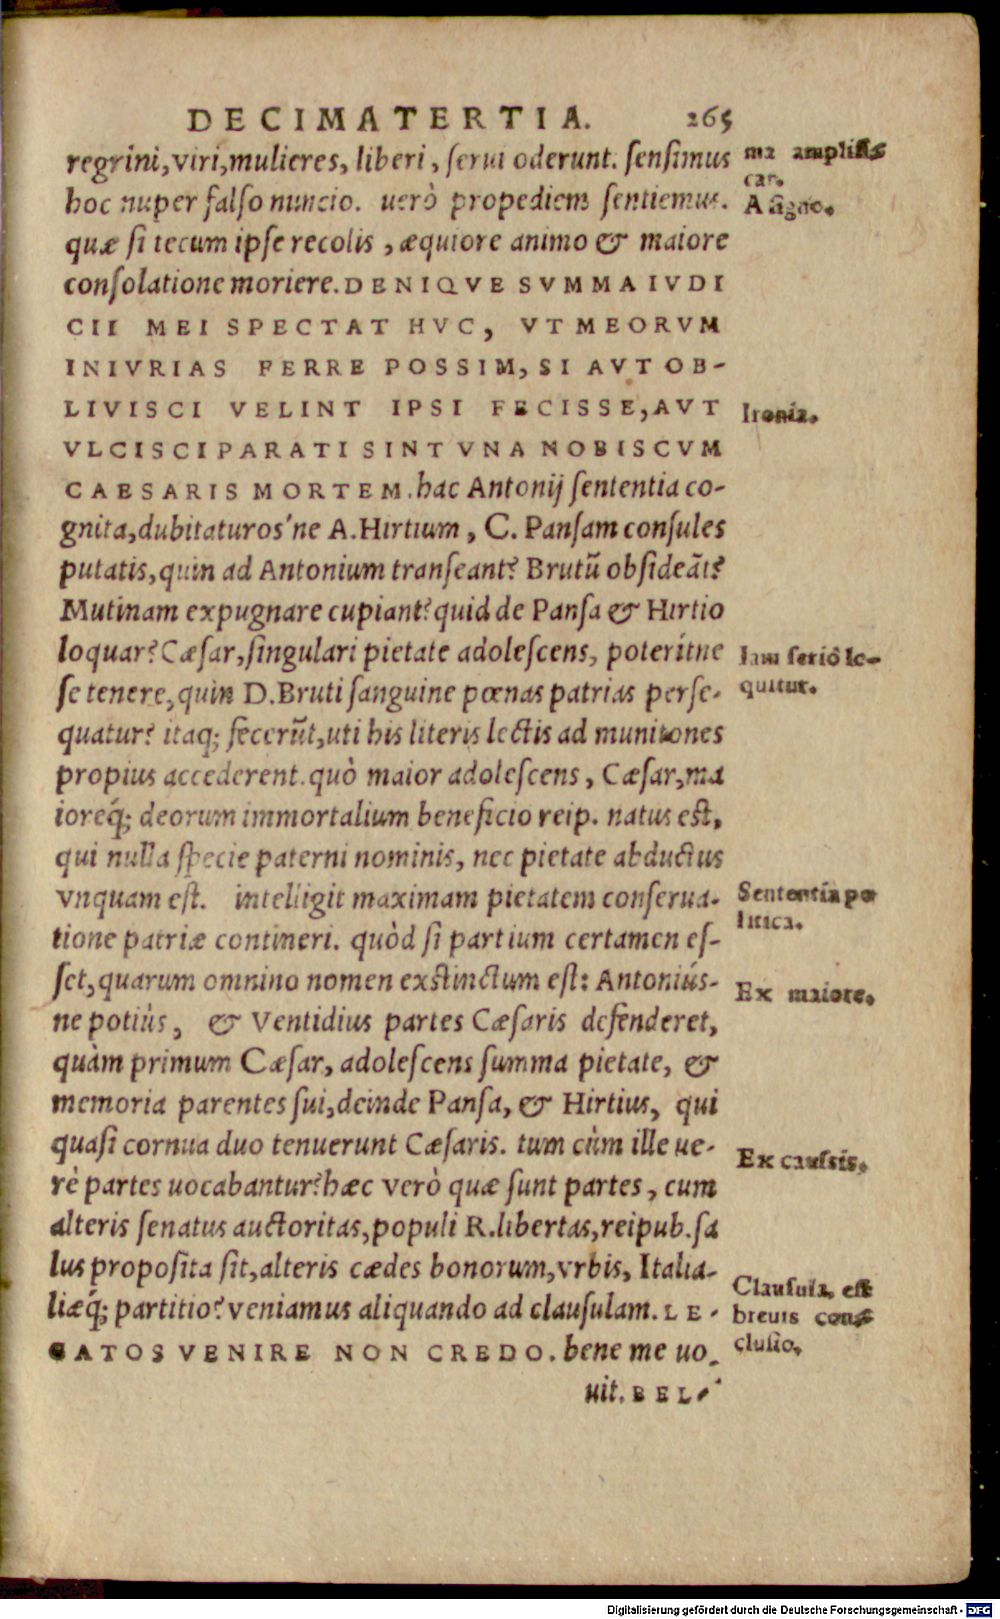 DECIMATERTIA. 265
regrini, viri, mulieres, liberi, serui oderunt. sensimus
hoc nuper falso nuncio. uerò propediem sentiemus.
quæ si tecum ipse recolis, æquiore animo & maiore
consolatione moriere. DENIQVE SVMMA IVDI
CII MEI SPECTAT HVC, VT MEORVM
INIVRIAS FERRE POSSIM, SI AVT OB-
LIVISCI VELINT IPSI FECISSE, AVT
VLCISCI PARATI SINT VNA NOBISCVM
CAESARIS MORTEM. hac Antonij sententia co-
gnita, dubitaturos'ne A. Hirtium, C. Pansam consules
putatis, quin ad Antonium transeant? Brutũ obsideãt?
Mutinam expugnare cupiant? quid de Pansa & Hirtio
loquar? Cæsar, singulari pietate adolescens, poterítne
se tenere, quin D. Bruti sanguine pœnas patrias perse-
quatur? itaq; fecerũt, uti his literis lectis ad munitones
propius accederent. quò maior adolescens, Cæsar, ma
ioreq́; deorum immortalium beneficio reip. natus est,
qui nulla specie paterni nominis, nec pietate abductus
vnquam est. intelligit maximam pietatem conserua-
tione patriæ contineri. quòd si partium certamen es-
set, quarum omnino nomen exstinctum est: Antoniús-
ne potiùs, & Ventidius partes Cæsaris defenderet,
quàm primum Cæsar, adolescens summa pietate, &
memoria parentes sui, deinde Pansa, & Hirtius, qui
quasi cornua duo tenuerunt Cæsaris. tum cùm ille ue-
rè partes uocabantur? hæc verò quæ sunt partes, cum
alteris senatus auctoritas, populi R. libertas, reipub. sa
lus proposita sit, alteris cædes bonorum, vrbis, Italia-
liæq́; partitio? veniamus aliquando ad clausulam. LE-
GATOS VENIRE NON CREDO. bene me uo-
uit. BEL-
ma amplifi-
car.
A signo.
Ironia.
Iam seriò lo-
quitur.
Sententia po
litica.
Ex maiore.
Ex caussis.
Clausula, est
breuis con-
clusio.
Digitalisierung gefördert durch die Deutsche Forschungsgemeinschaft - DFG